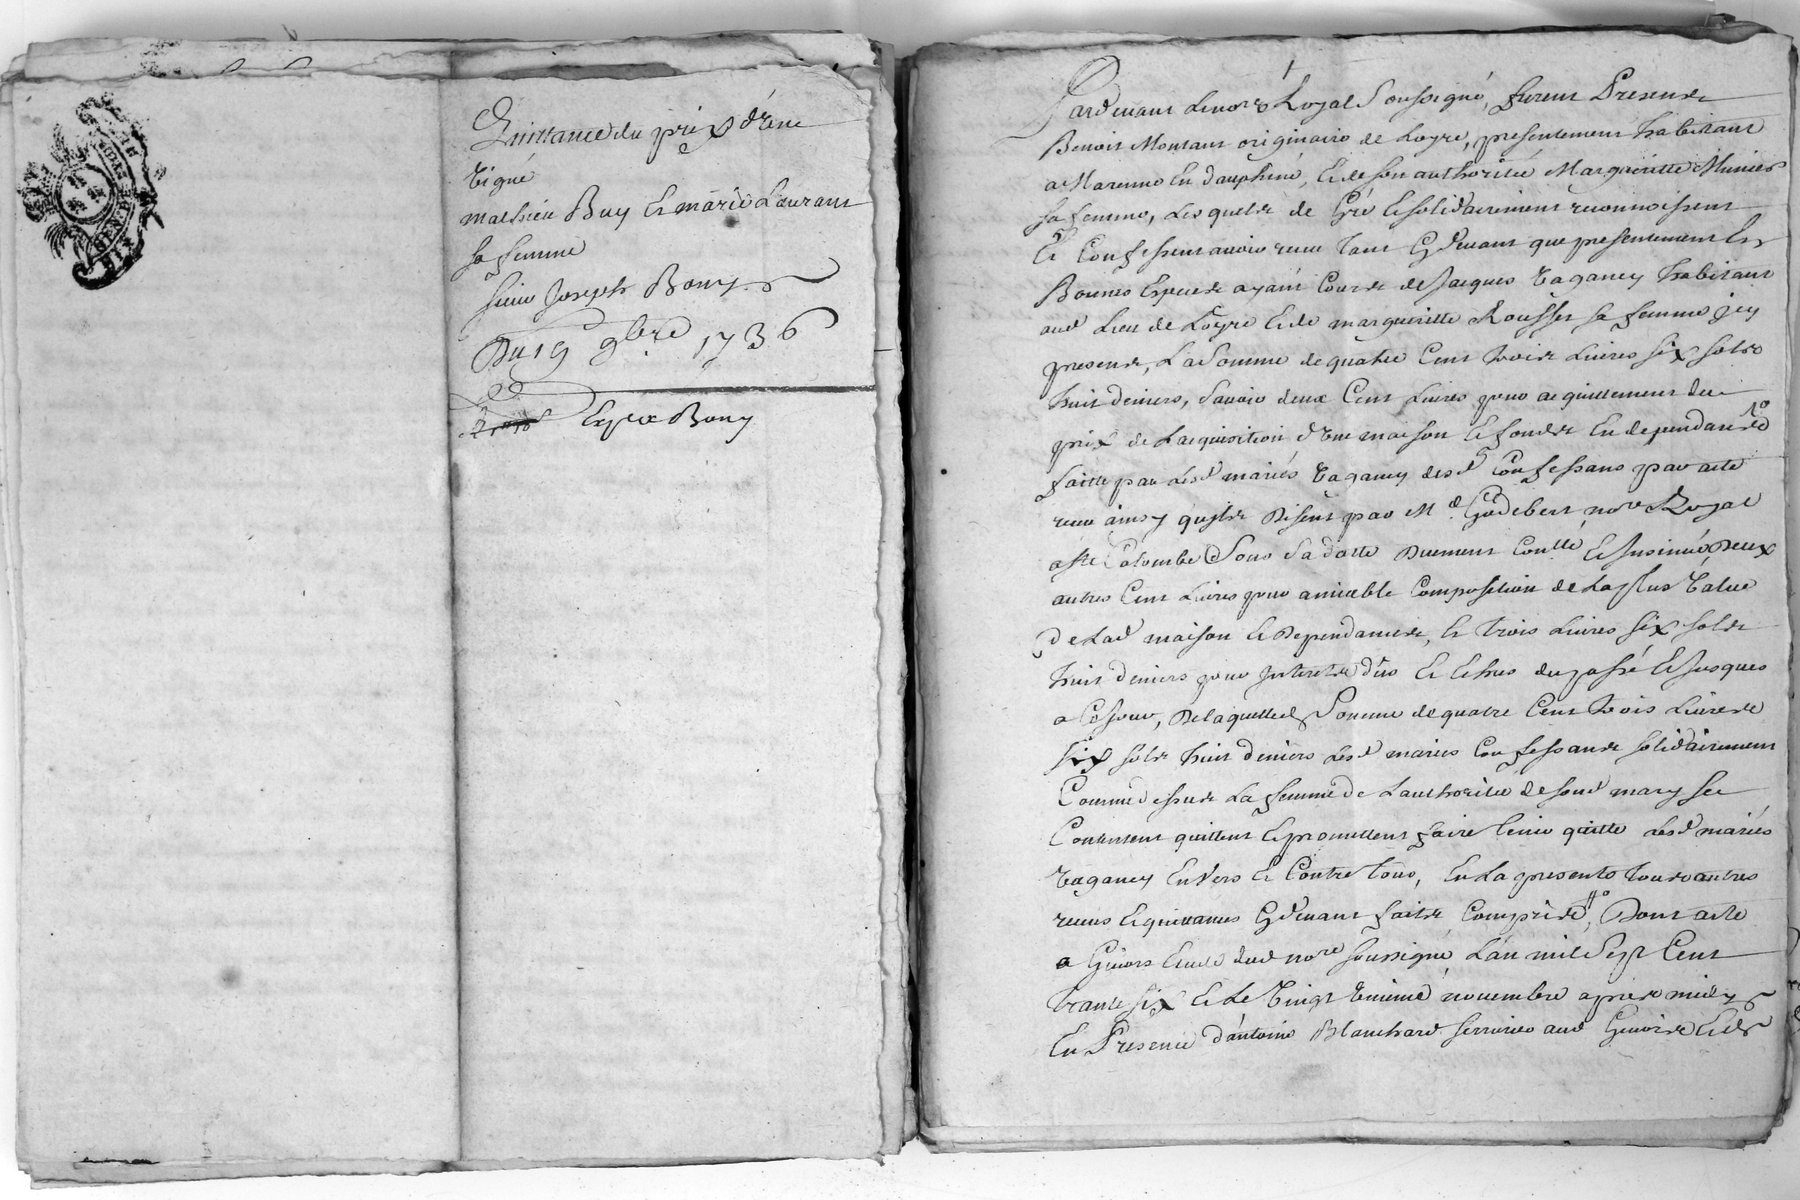 Quittance du prix d'une
vigne
mathieu Buy Et marie Laurans
sa femme
sieur Joseph Bony
Du 19 9bre 1736
Expée Bony
Pardevant Le nore Royal Soussigné, furent Presents
Benoit Montant originaire de Loyre, presentement habitant
a Marenne En dauphiné, Et de son authorité Margueritte Minier
sa femme, Lesquels de Gré Et solidairement reconnoissent
Et Confessent avoir receu tant Cy devant que presentement En
Bonnes Especes ayant Cours de Jacques Vaganey habitant
aud Lieu de Loyre Et de margueritte Rousset sa femme icy
presents, La Somme de quatre Cent trois Livres six sols
huit deniers, Savoir deux Cent Livres pour acquittement du
prix de Lacquisition d'Une maison Et fonds En dependants
faitte par Lesd mariés Vaganey desd Confessans par acte
receu ainsy qu'ils Disent par Me Guedebert nore Royal
a Ste Colombe Sous Sa datte Duement Contlé Et Insinué Deux
autres Cent Livres pour amiable Composition de La plus Value
de Lad maison Et Dependances, Et trois Livres six sols
huit deniers pour Interets dus Et Echus du passé Et Jusques
a Ce Jour, De laquelle Somme de quatre Cent trois Livres
six sols huit deniers Lesd mariés Confessants solidairement
Comme dessus La femme de L'authorité de sond mary se
Contentent quittent Et promettent faire tenir quitte Lesd mariés
Vaganey Envers Et Contre tous, En La presente tous autres
receus Et quittances Cy devant faits Compris, Dont acte
a Givors Etude dud nore soussigné L'an mil Sept Cent
trante six Et Le Vingt Unieme novembre apres midy
En Presence d'antoine Blanchard serrurier aud Givors Et de